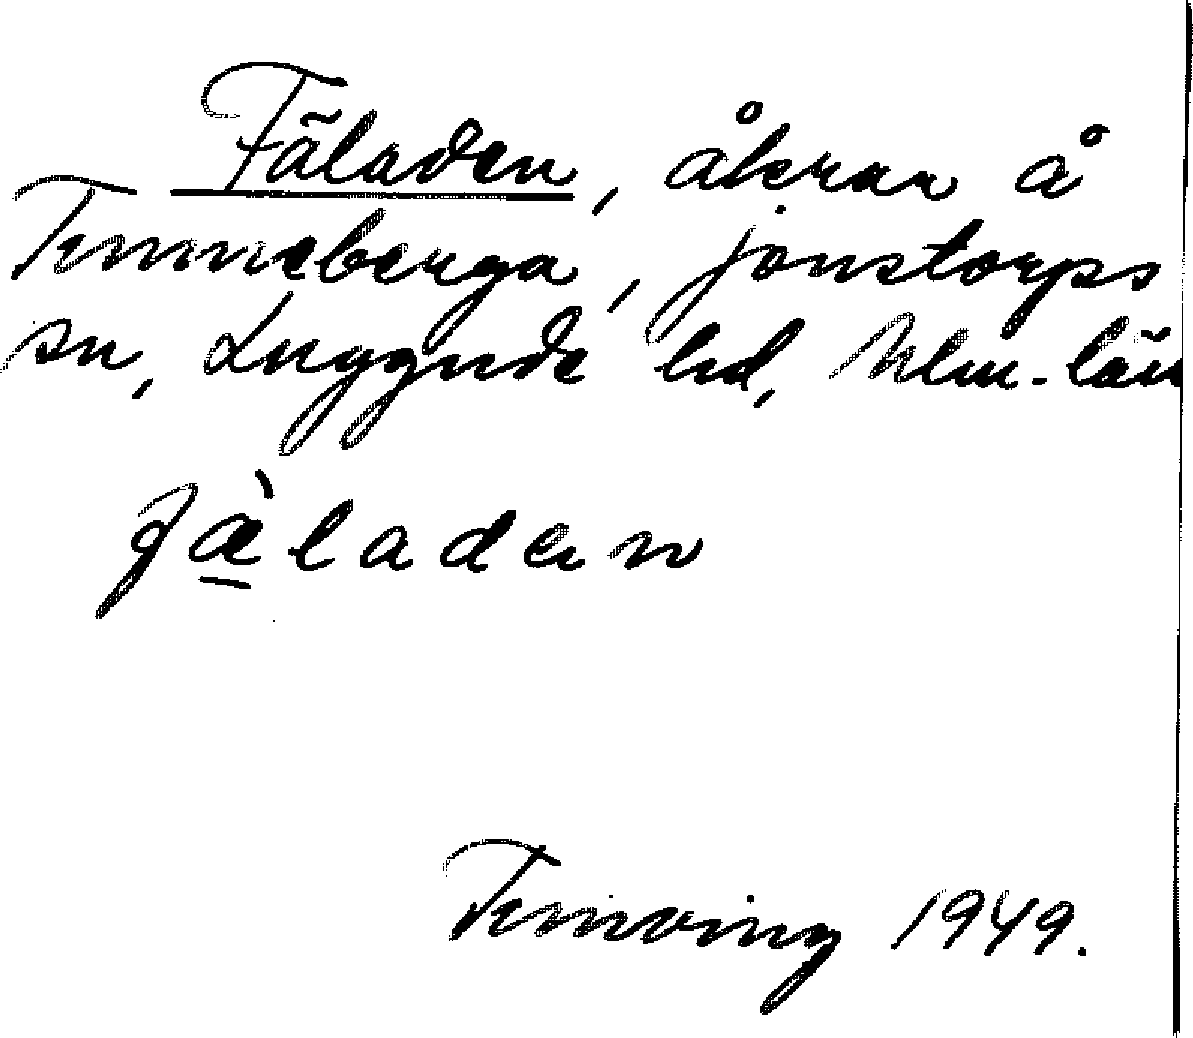 Fäladen, åkrar å
Tunneberga, Jonstorps
sn, Luggude hd, Mlm. län
fæ̀ladɛn
Ternving 1949.